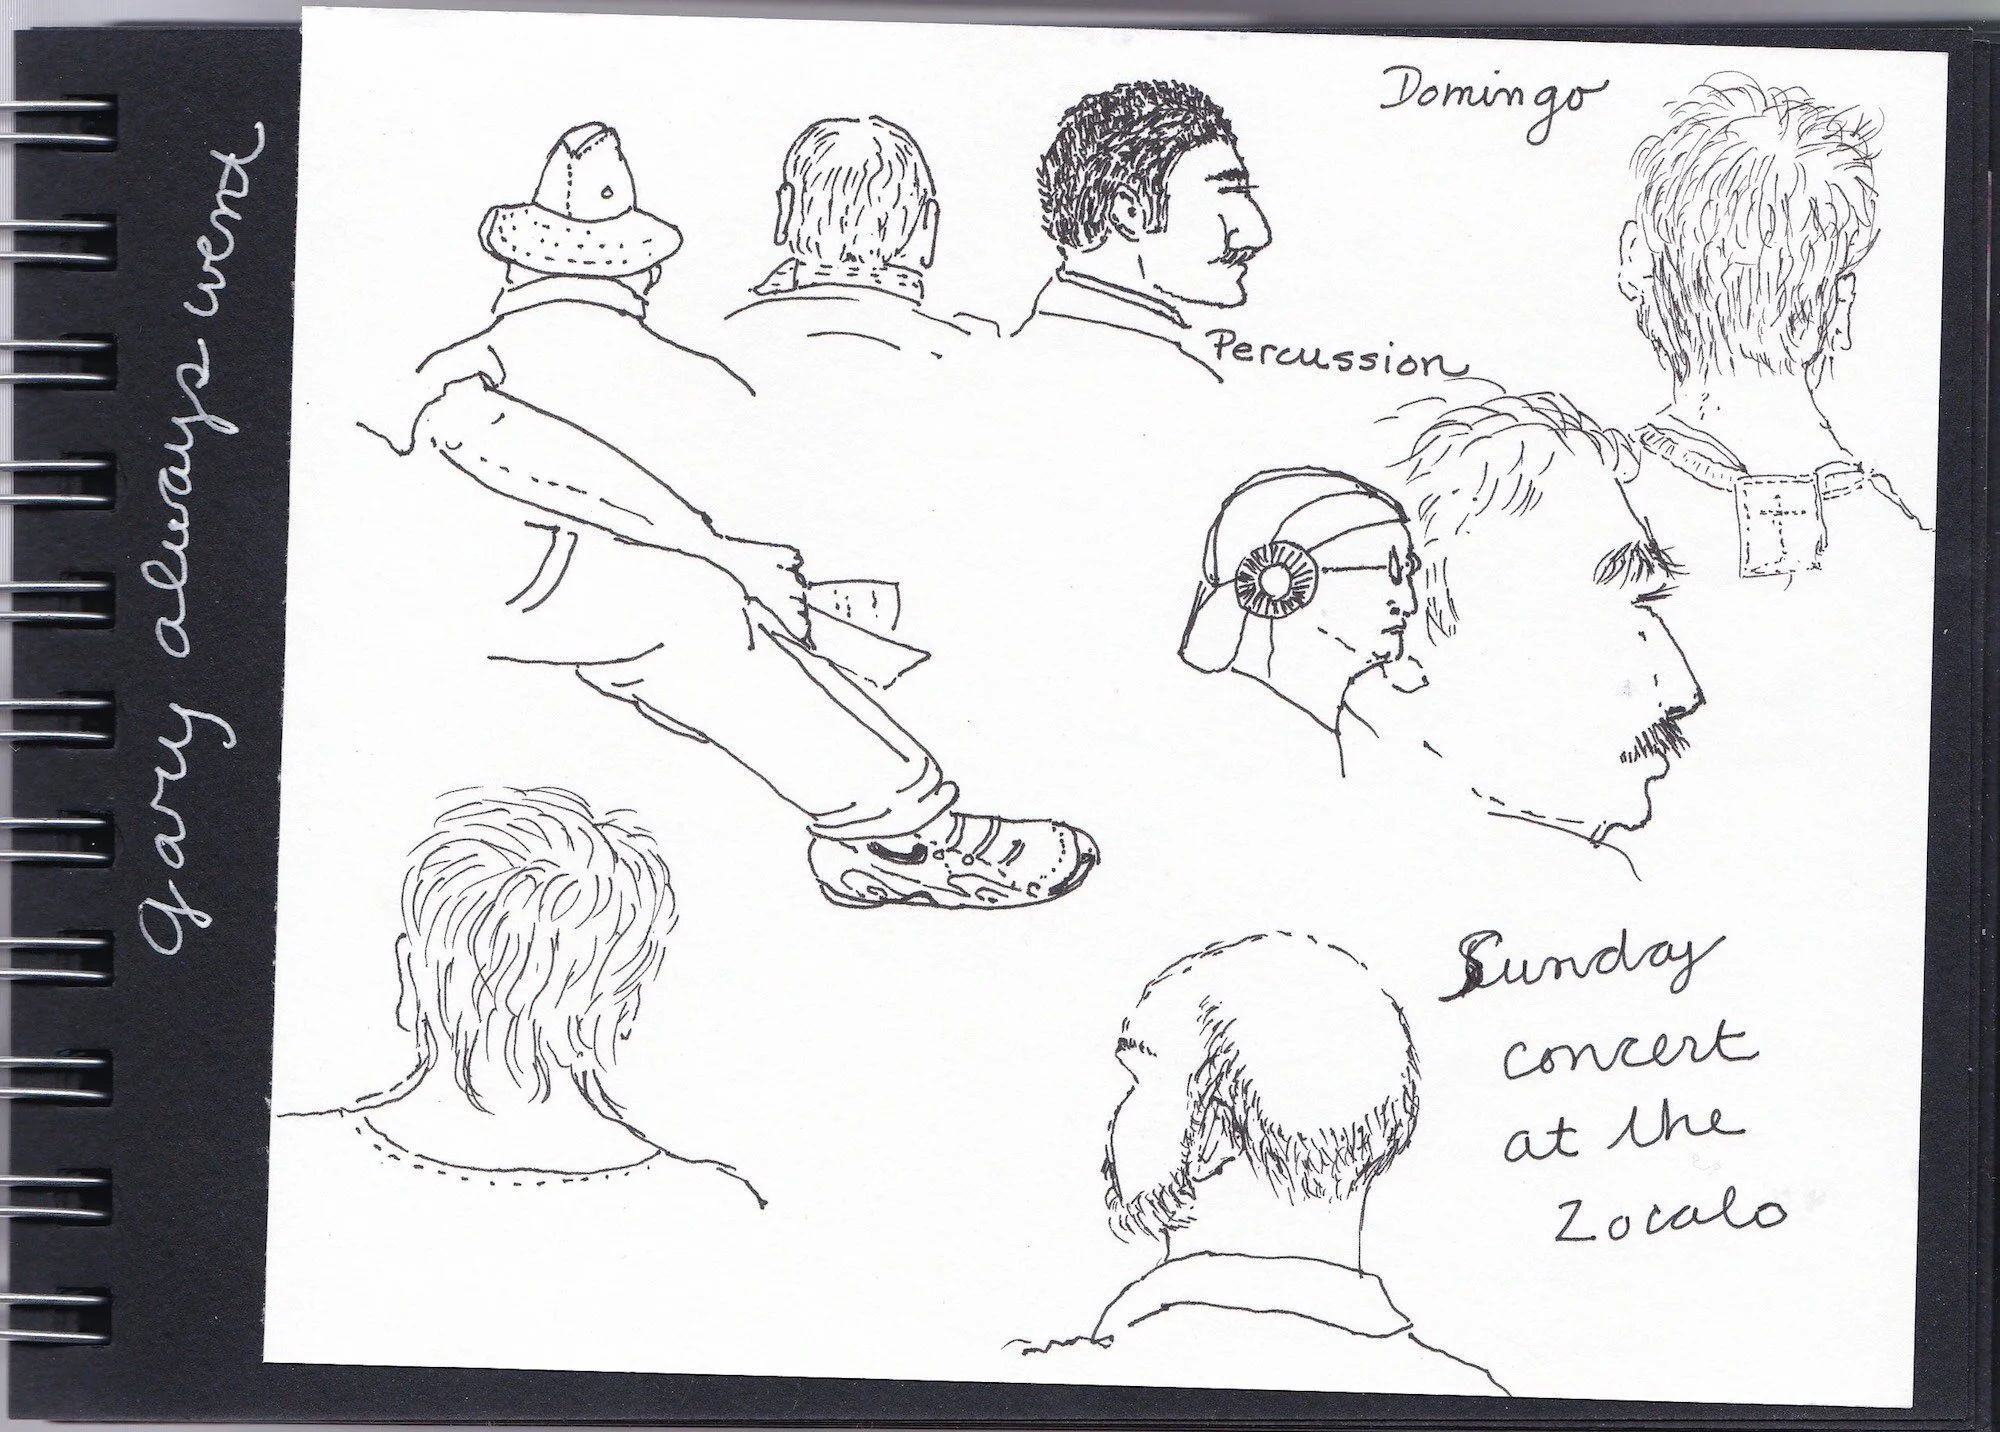 Garry always went
Domingo
Percussion
Sunday
concert
at the
Zocalo